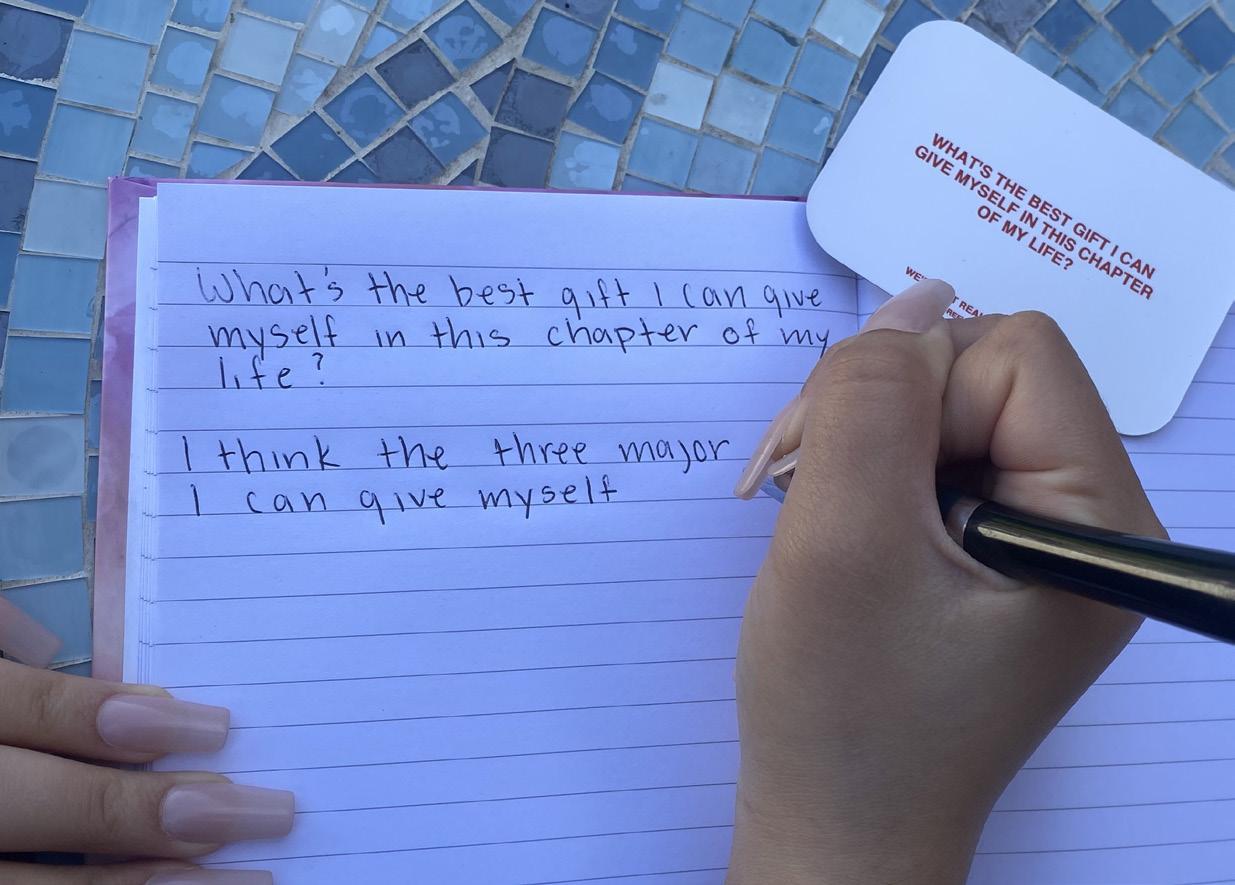 What's the best gift I can give
myself in this chapter of my
life?
I think the three major
I can give myself
WHAT'S THE BEST GIFT I CAN
GIVE MYSELF IN THIS CHAPTER
OF MY LIFE?